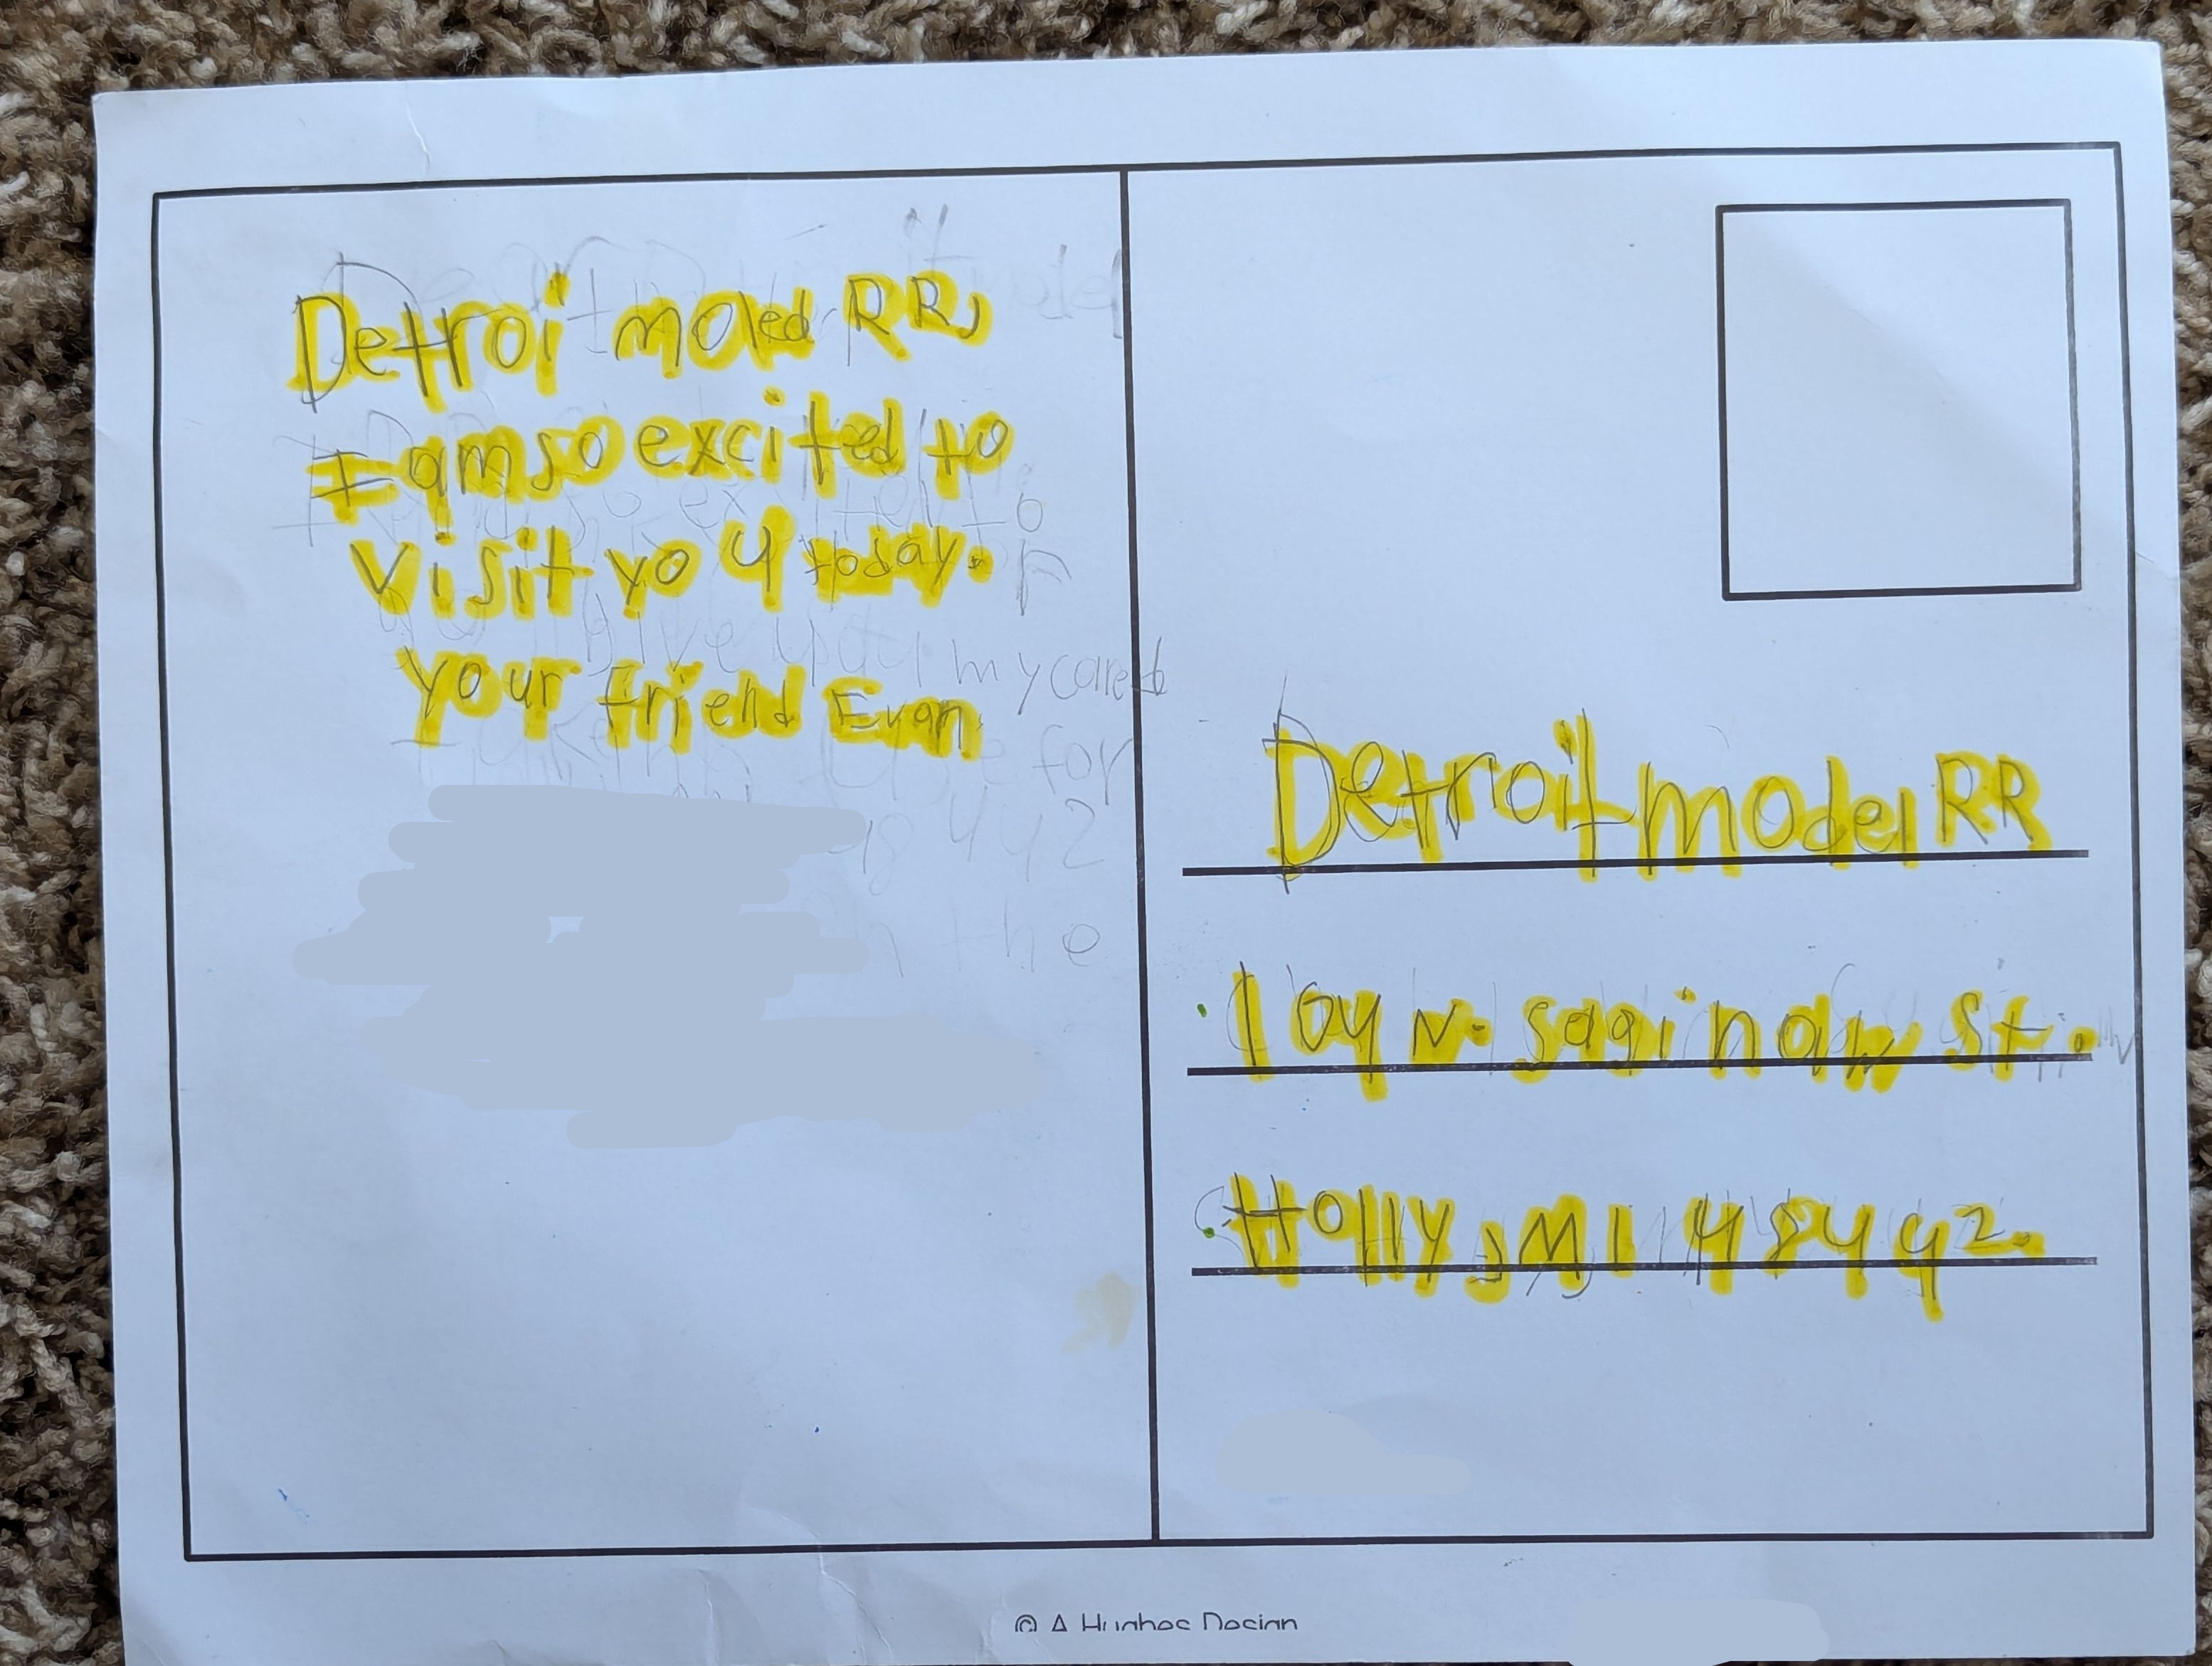 Detroi moled RR,
I am so excited to
visit you today.
your friend Evan
my care
for
8442
the
Detroit model RR
104 N. saginaw St.
Holly, MI 48442.
© A Hughes Design